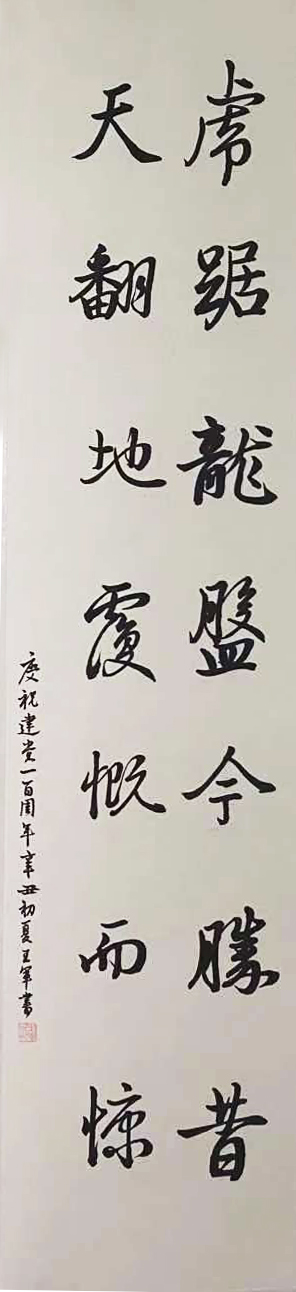 虎踞龍盤今勝昔
天翻地覆慨而慷
慶祝建党一百周年辛丑初夏王軍書